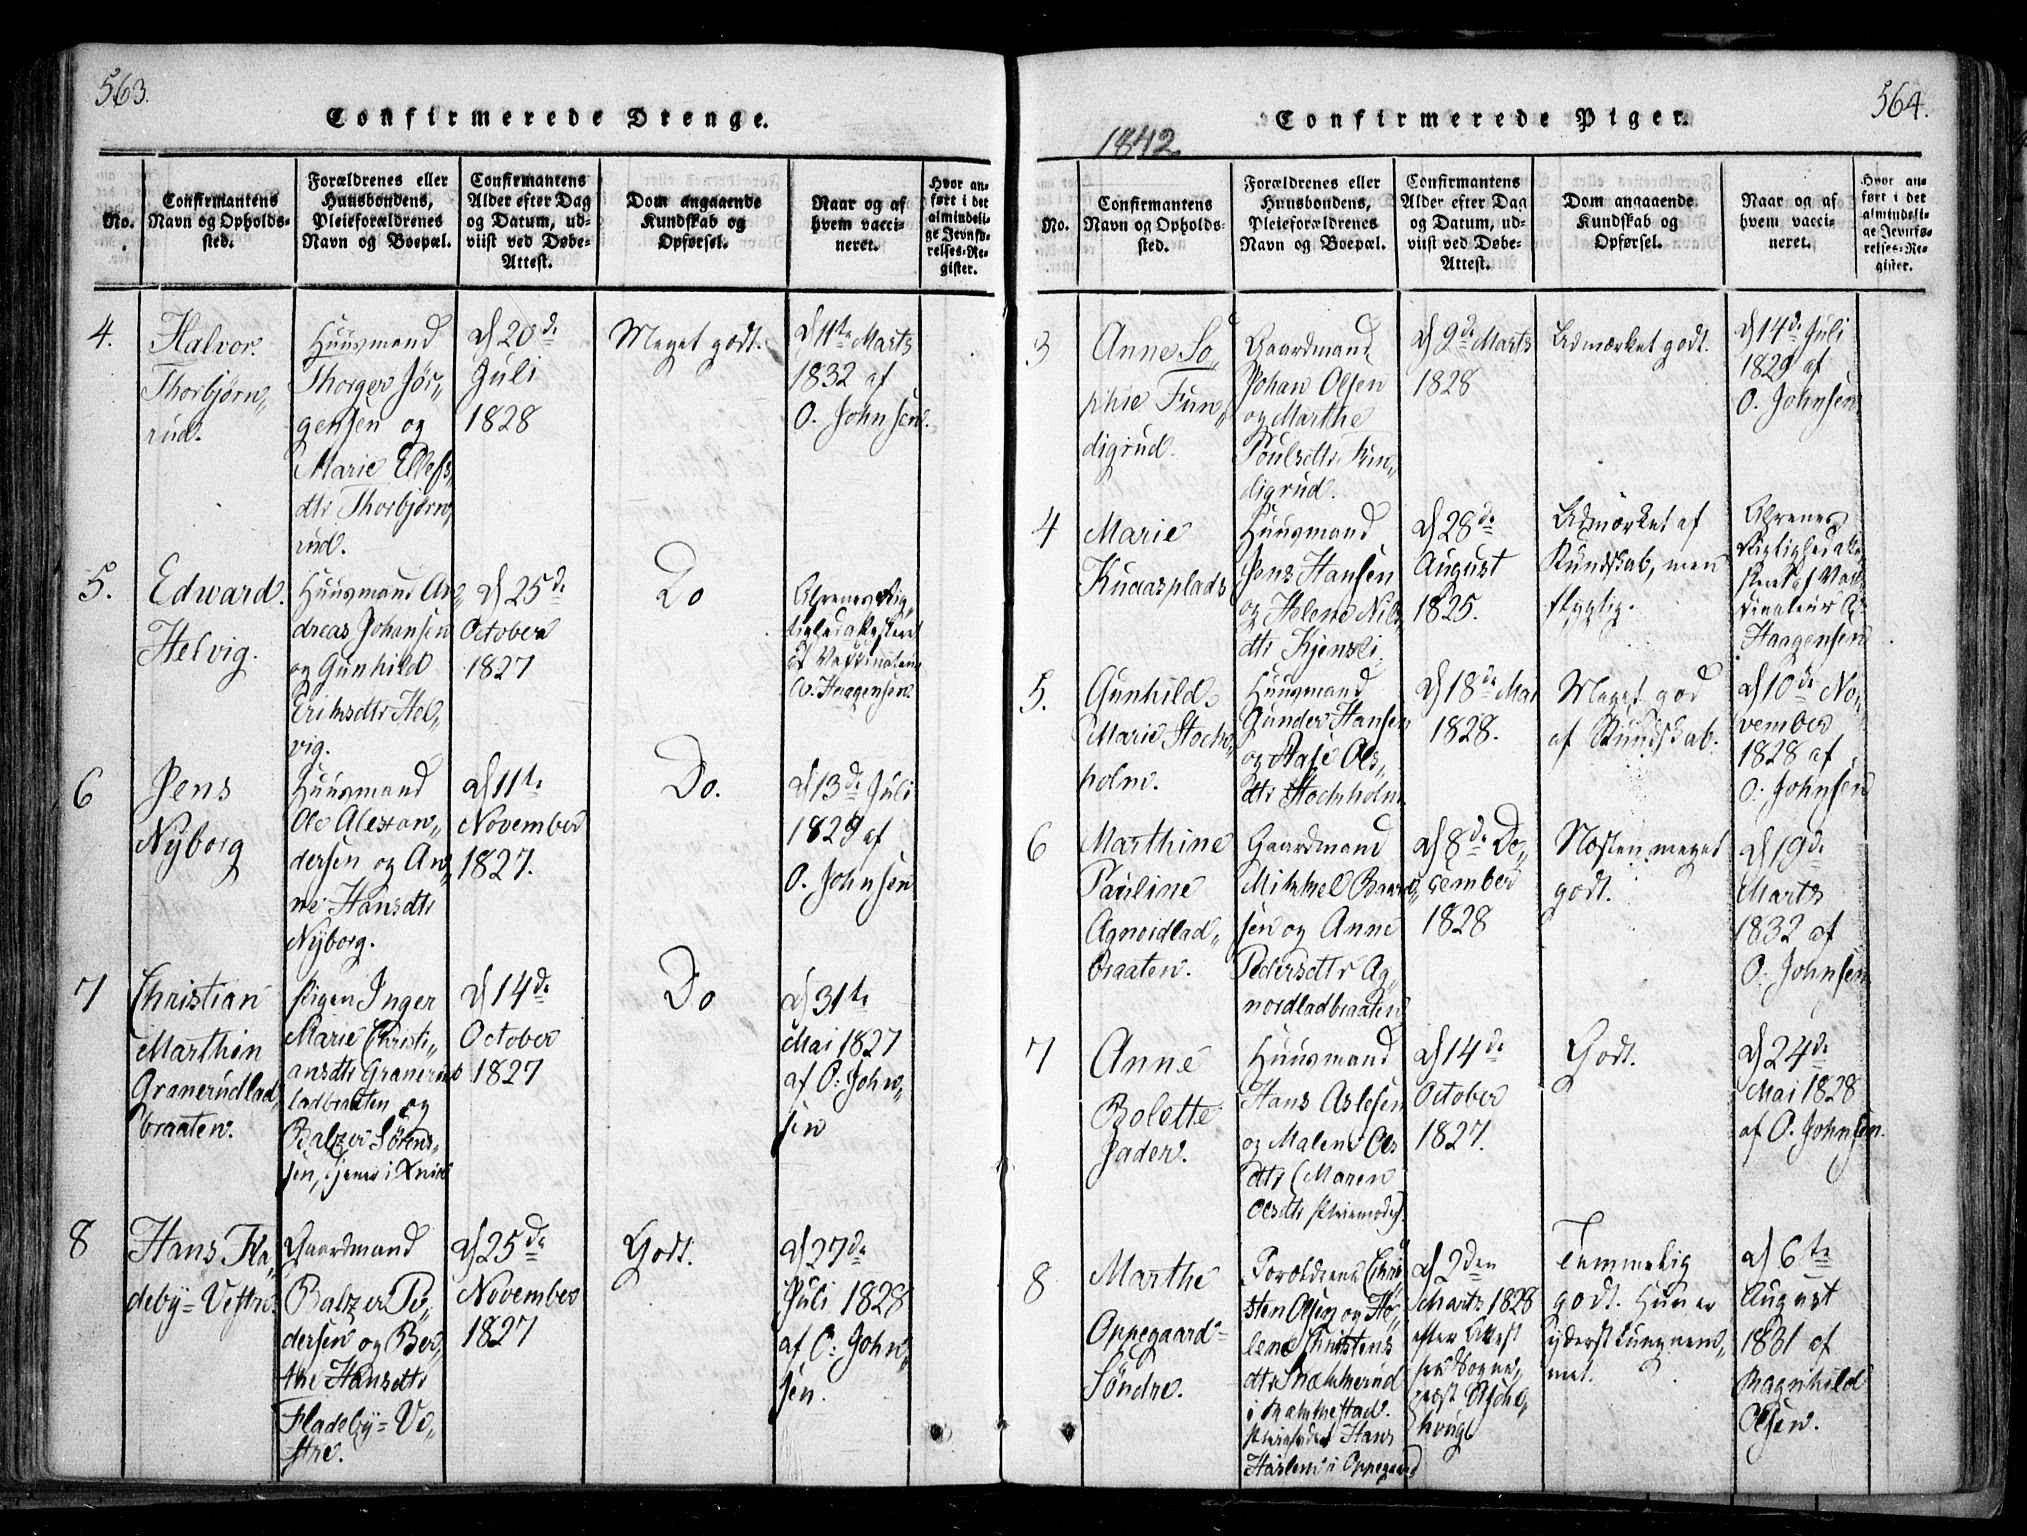 563.
Confirmerede Drenge.
No.
Confirmantens
Navn og Opholds-
sted.
Forældrenes eller
Huusbondens,
Pleieforældrenes
Navn og Boepæl.
Confirmantens
Alder efter Dag
og Datum, ud-
viist ved Døbe-
Attest.
Dom angaaende
Kundskab og
Opførsel.
Naar og af
hvem vacci-
neret.
Hvor an-
ført i det
almindeli-
ge Jevnfø-
relses-Re-
gister.
4.
Halvor
Thorbjørn„
rud.
Huusmand
Thorger Jør-
gensen og
Marie Ellefs„
dtr Thorbjørn„
rud.
d 20de
Juli
1828
Meget godt.
d 11te Marts
1832 af
O. Johnsen.
5.
Edward
Helvig.
Huusmand An„
dreas Johansen
og Gunhild
Eriksdtr Hel„
vig.
d 25de
October
1827
Do
6
Jens
Nyborg
Huusmand
Ole Alexan„
dersen og An„
ne Hansdtr
Nyborg.
d 11te
November
1827.
Do.
d 13de Juli
1829 af
O. Johnsen
7
Christian
Marthin
Granerudlad„
braaten.
Pigen Inger
Marie Christi„
ansdtr Granerud
ladbraaten og
Baltzer Sörens„
sen,
d 14de
October
1827
Do
d 31te
Mai 1827
af O. John„
sen
8
Hans Fla„
deby-Vestre
Gaardmand
Baltzer Pe„
dersen og Ber„
the Hansdtr
Fladeby-Ve„
stre.
d 25de
November
1827
Godt.
d 27de
Juli 1828
af O. John„
sen.
564.
Confirmerede Piger.
1842
No.
Confirmantens
Navn og Opholds-
sted.
Forældrenes eller
Huusbondens,
Pleieforældrenes
Navn og Boepæl.
Confirmantens
Alder efter Dag
og Datum, ud-
viist ved Døbe-
Attest.
Dom angaaende
Kundskab og
Opførsel.
Naar og af
hvem vacci-
neret.
Hvor an-
ført i det
almindeli-
ge Jevnfø-
relses-Re-
gister.
3
Anne So„
phie Fun„
digrud.
Gaardmand
Johan Olsen
og Marthe
Poulsdtr Fun„
digrud.
d 2de Marts
1828
Udmærket godt.
d 14de Juli
1829 af
O. Johnsen
4
Marie
Kuraasplads
Huusmand
Jens Hansen
og Helene Nils„
dtr Kjensli.
d 28de
August
1825.
Udmærket af
Kundskab, men
Haagensen
5.
Gunhild
Marie Stock„
holm.
Huusmand
Gunder Hansen
og Aase Ols„
dtr Stockholm
d 18de Mai
1828.
Meget god
af Kundskab.
d 10de No„
vember
1828 af
O. Johnsen
6
Marthine
Pauline
Agnordlad„
braaten.
Gaardmand
Mikkel
sen og Anne
Pedersdtr Ag„
nordladbraaten
d 8de De„
cember
1828
Næsten meget
godt.
d 19de
Marts
1832 af
O. Johnsen
7
Anne
Bolette
Jader.
Huusmand
Hans Aslesen
og Malene Ols
dtr (Maren
Olsdtr
d 14de
October
1827.
Godt.
d 24de
Mai 1828
af O. Johnsen.
8
Marthe
Oppegaard-
Söndre.
Forældrene Chri
sten Olsen og He„
lene Christens
dtr
Hans
i Oppegaard
d 2den
Marts 1828
efter Attest
Temmelig
godt. Hun er
yderst tungnem„
met.
d 6te
August
1831 af
Magnhild
Olsen.